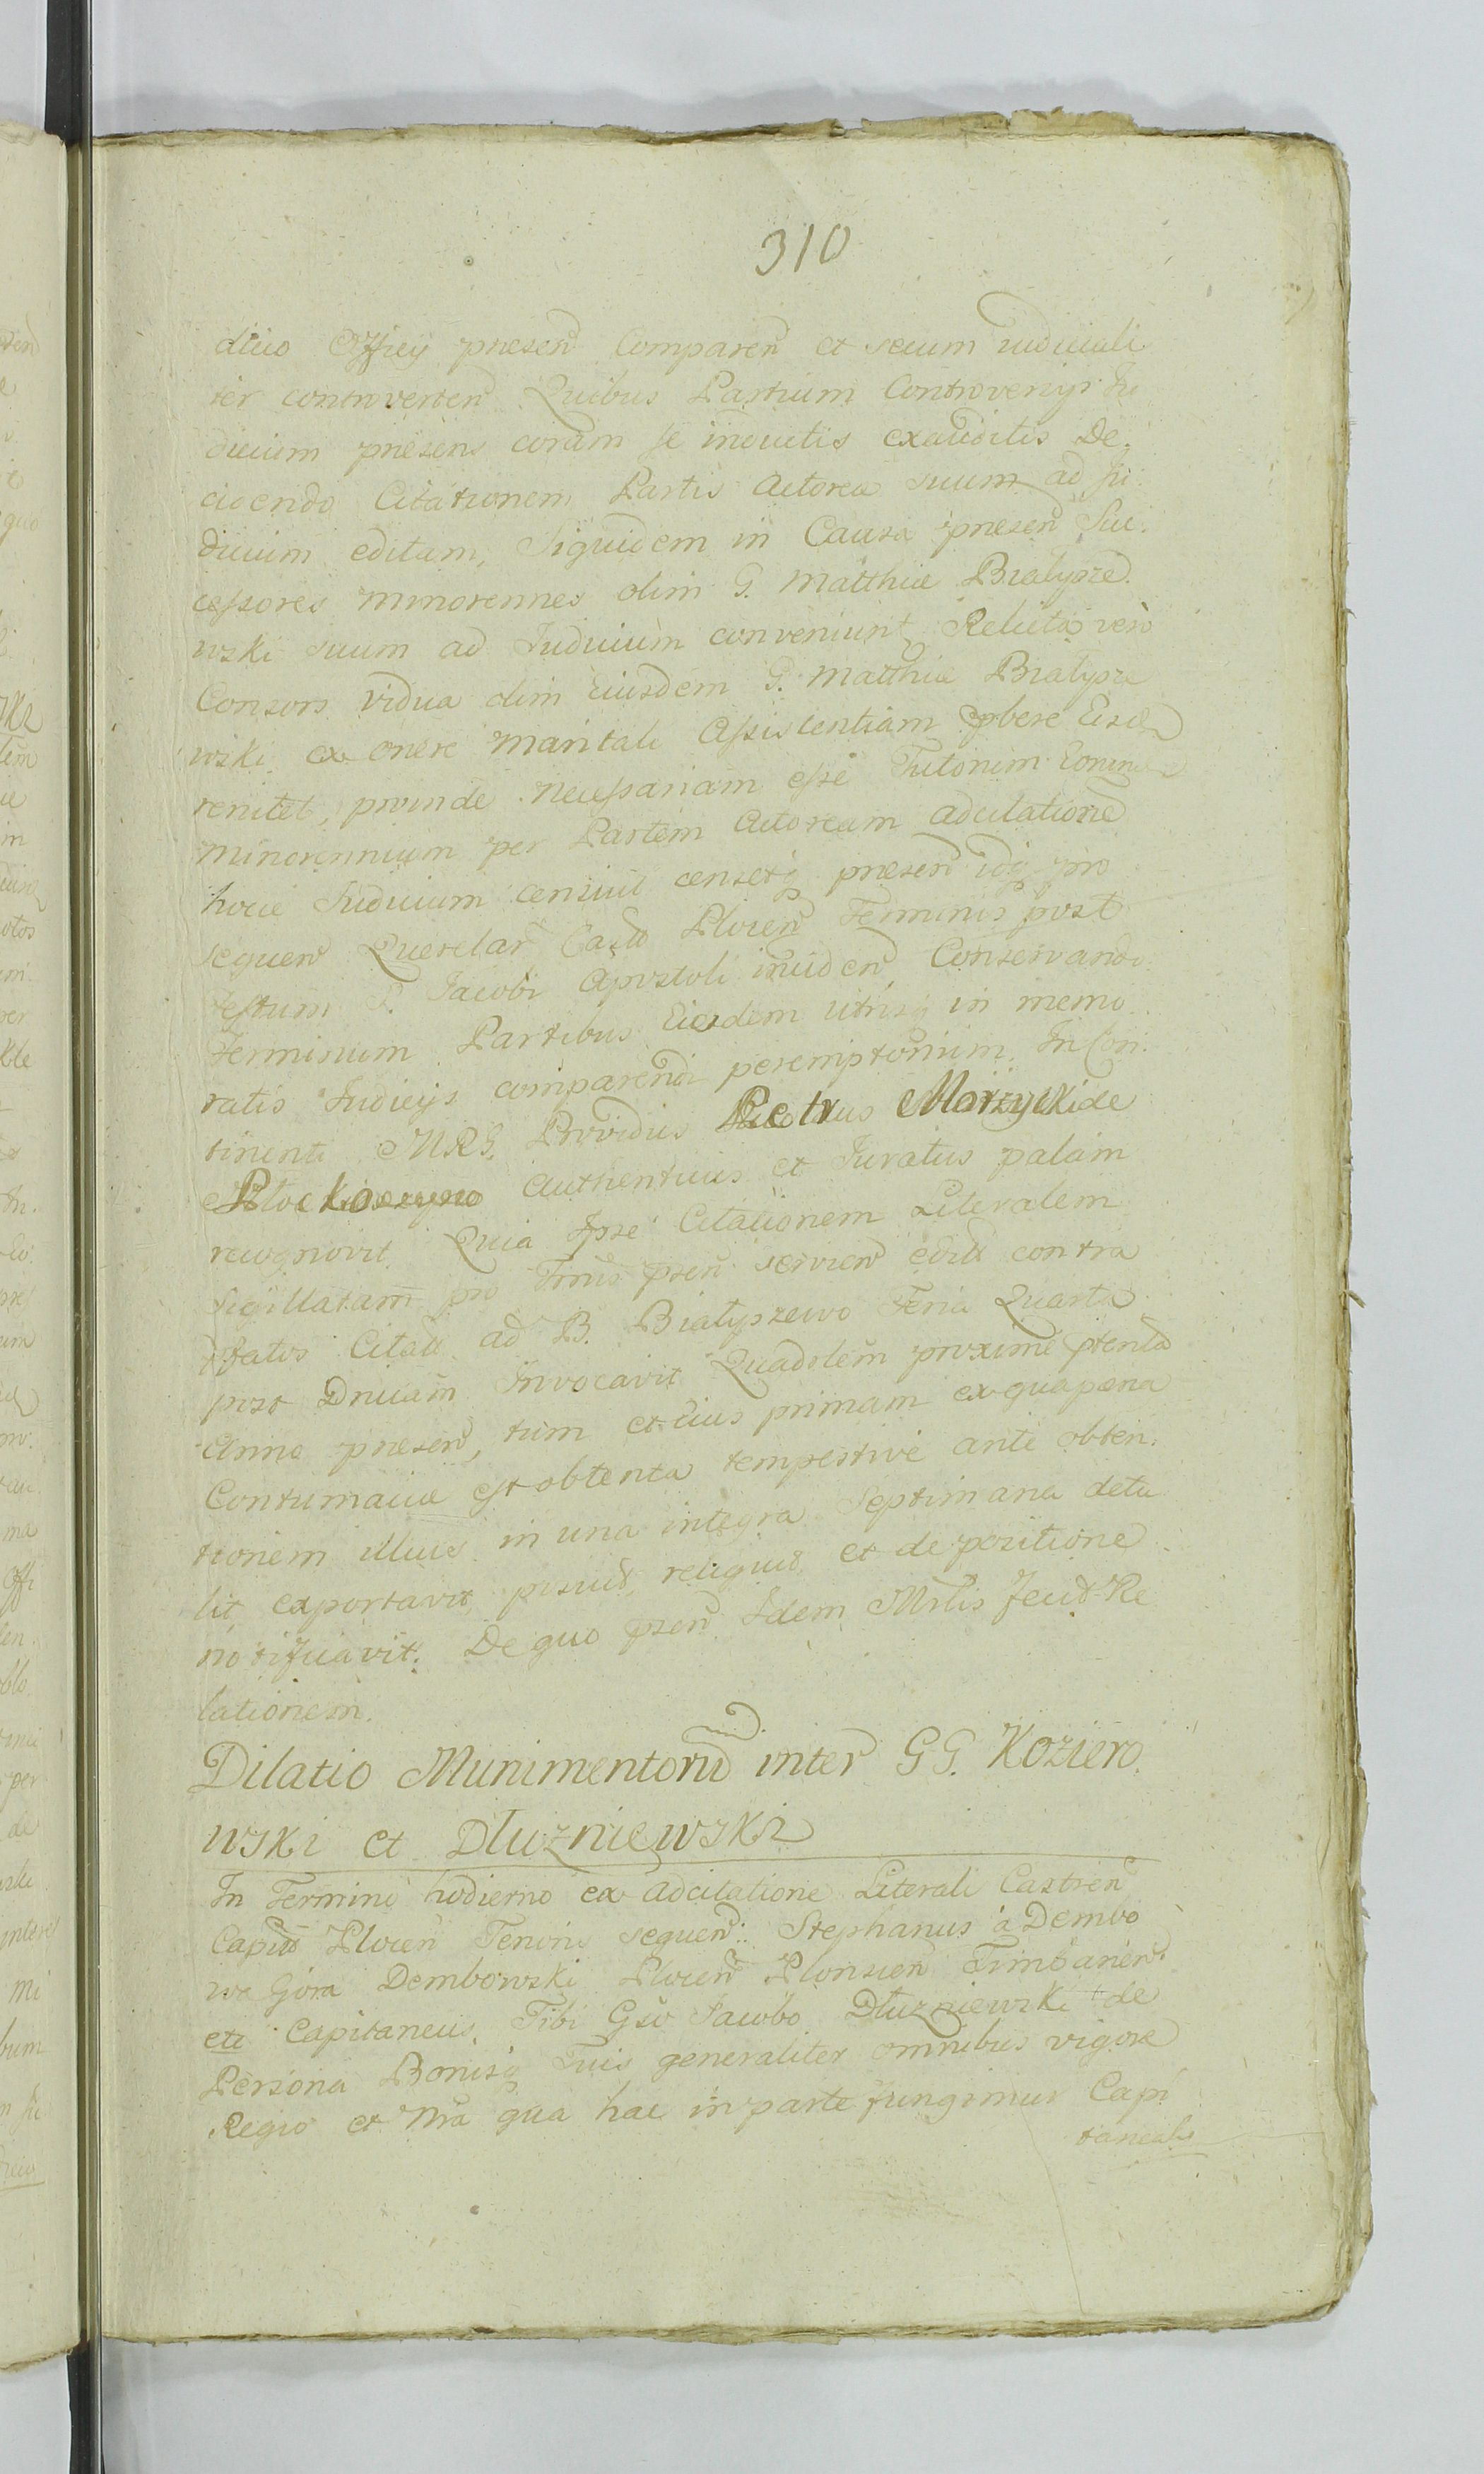 310
dtuo Officy presen Comparen et secum iudiciali
ter controverten Quibus Partium Controversys Iu
dicium presens coram se inductis exauditis De,
cidendo Citationem Partis Actorea suum ad Iu
dicium editam, Siquidem in Causa presen Suc.
cessores minorennes olim G. Matthiæ Białysze
wski suum ad Iudicium conveniunt Relicta vero
Consors vidua olim Eiusdem G. Matthiæ Białysze
wski ex onere maritali Assistentiam Eisd
renitet, proinde necessariam esse Tutorum
minorennium per Partem Actoream adcitatione
hocce Iudicium censuit censetq presen idq pro
sequen Querelar Plocen Terminis post
Festum S. Iacobi Apostoli inciden Conservando
Terminum Partibus Eisdem utrisq in memo
ratis Iudicys comparendi peremptorium. In Con.
tinenti MRG. Providus Petrus Morzycki de
Authenticus et Iuratus palam
recognovit Quia Ipse Citationem Literalem
Sigillatam pro Tmis psen servien edit contra
pfatos Citat ad B. Białyszewo Feria Quarta
post Dnicam Invocavit Quadrlem proxime pterita
Anno presen, tum et eius primam ex qua pæna
Contumaciæ est obtenta tempestive ante obten,
tionem illius in una integra Septimana detu
lit exportavit, posuit, reliquit et de positione
notificavit. De quo psen Idem Mrlis fecit Re
lationem.
Dilatio Munimentorum inter GG. Koziero
wski et Dłuzniewski
In Termino hodierno ex Adcitatione Literali Castren
Capit Plocen Tenoris sequen: Stephanus a Dembo
wa Góra Dembowski Plocen Plonscen
etc Capitaneus. Tibi Gso Iacobo Dłuzniewski de
Persona Bonisq Tuis generaliter omnibus vigore
Regio et Nra qua hac in parte fungimur Capi
taneali